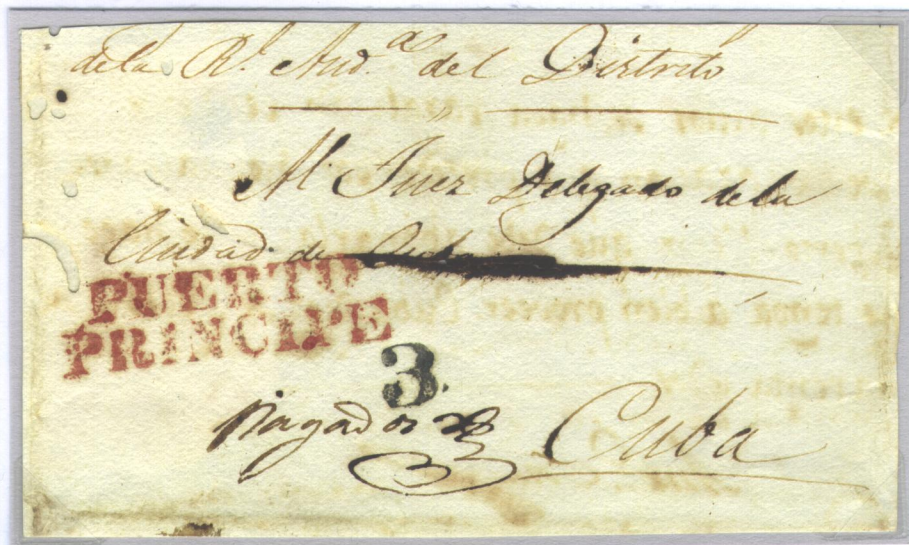 de la Rl. Aud.a del Distrito
Al Juez Delegado de la
Ciudad de Cuba
PUERTO
PRINCIPE
3
Cuba